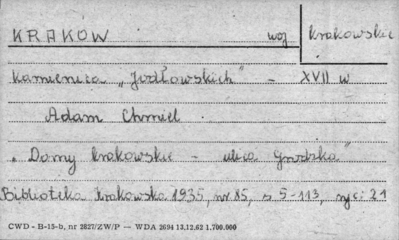 KRAKÓW woj krakowskie
kamienica „Jodłowskich" - XVII w
Adam Chmiel
„Domy krakowskie - ulica Grodzka"
Biblioteka krakowska 1935, nr 85, s 5-113, ryc: 21
CWD - B-15-b, nr 2827/ZW/P — WDA 2694 13.12.62 1.700.000